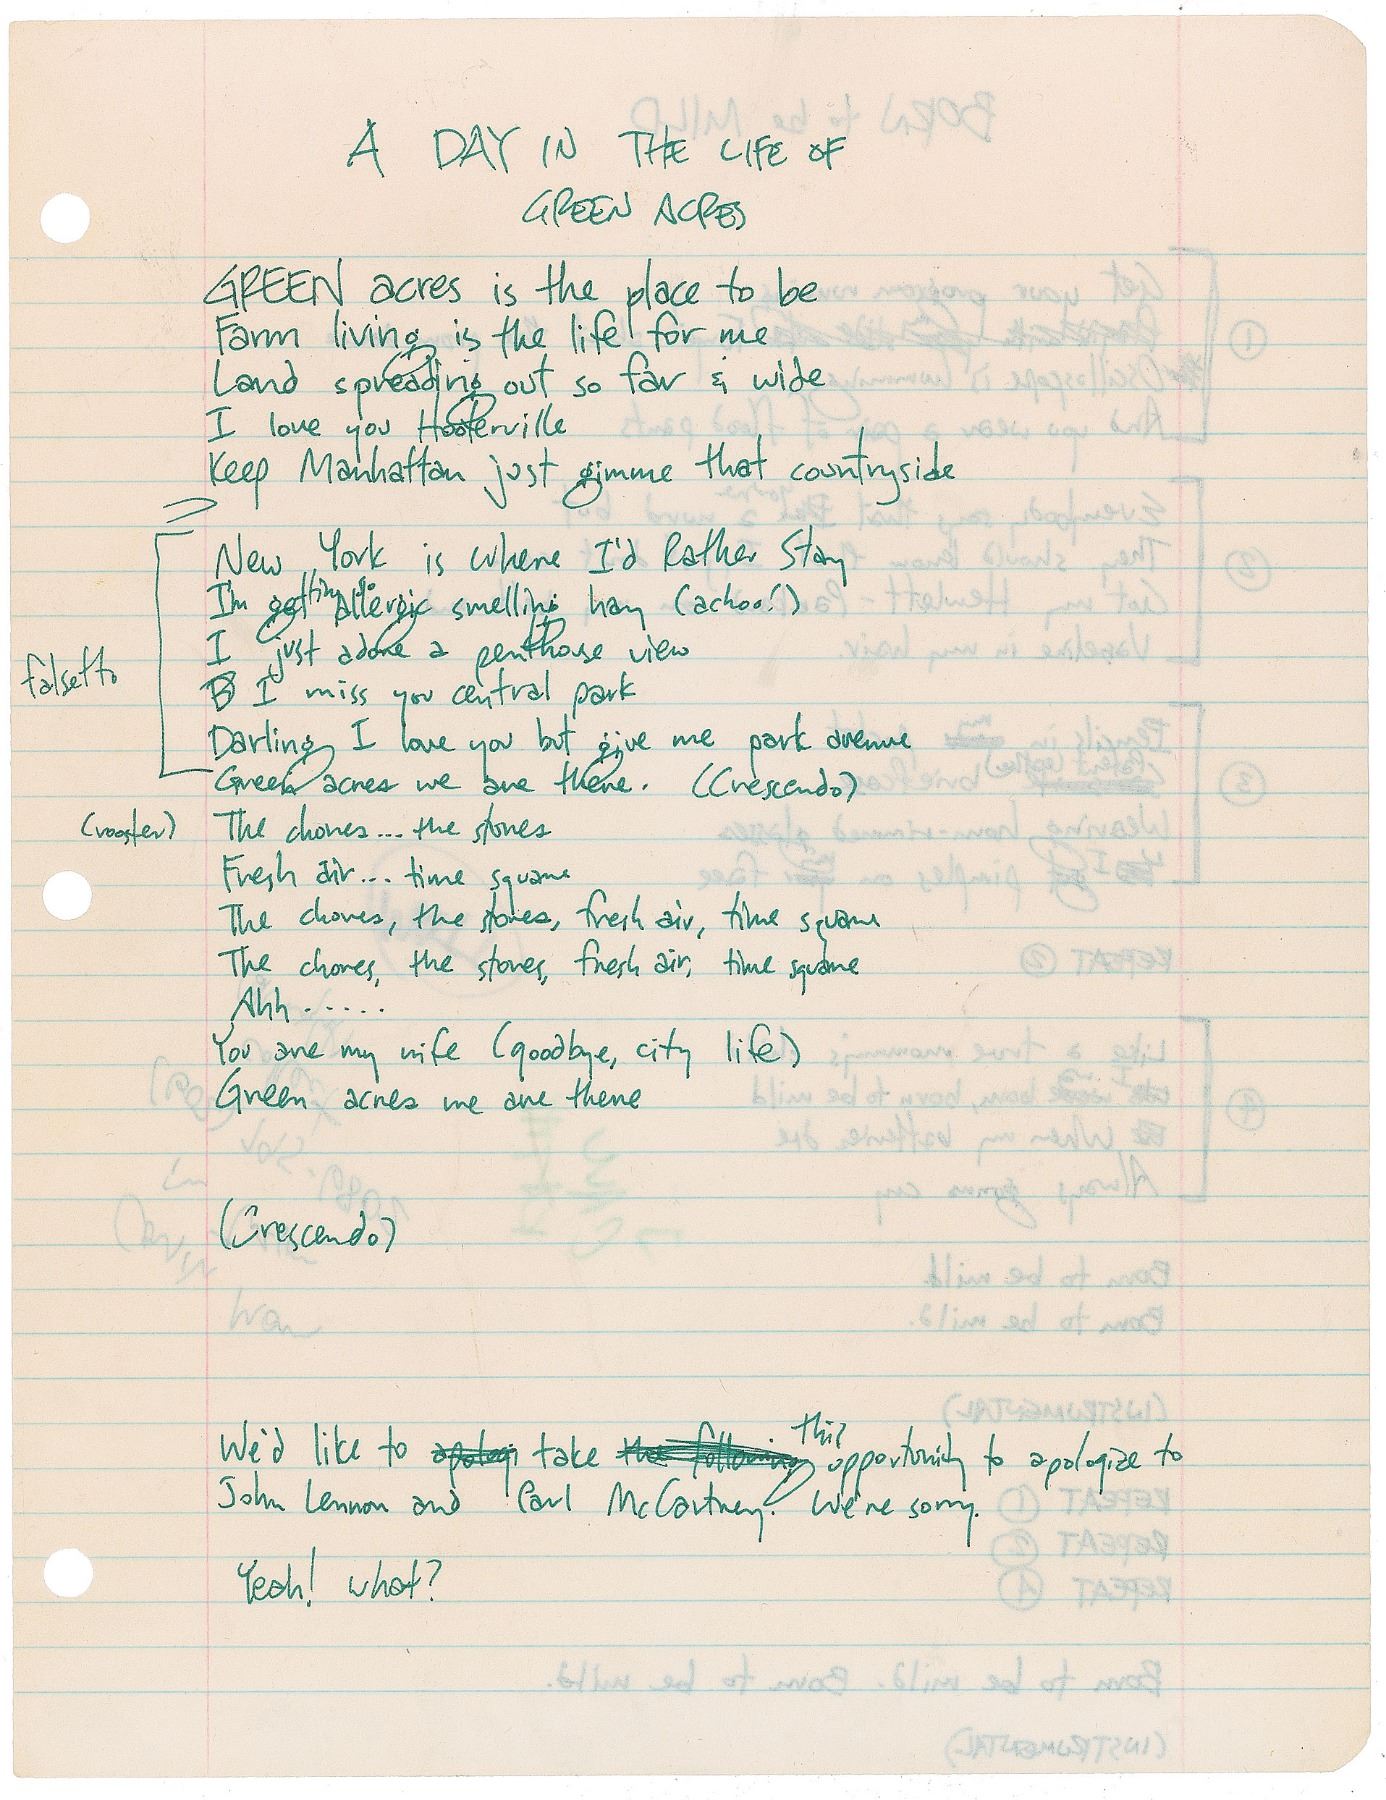 A DAY IN THE LIFE OF
GREEN ACRES
GREEN acres is the place to be
Farm living is the life for me
Land spreading out so far & wide
I love you Hooterville
Keep Manhattan just gimme that countryside
New York is where I'd Rather Stay
I'm getting allergic smelling hay (achoo!)
I just adore a penthouse view
falsetto
B I miss you central park
Darling I love you but give me park avenue
Green acres we are there. (Crescendo)
(rooster) The chores... the stores
Fresh air... time square
The chores, the stores, fresh air, time square
The chores, the stores, fresh air, time square
Ahh ......
You are my wife (goodbye, city life)
Green acres we are there
(Crescendo)
We'd like to apologi take the following this opportunity to apologize to
John Lennon and Paul McCartney. We're sorry.
Yeah! what?